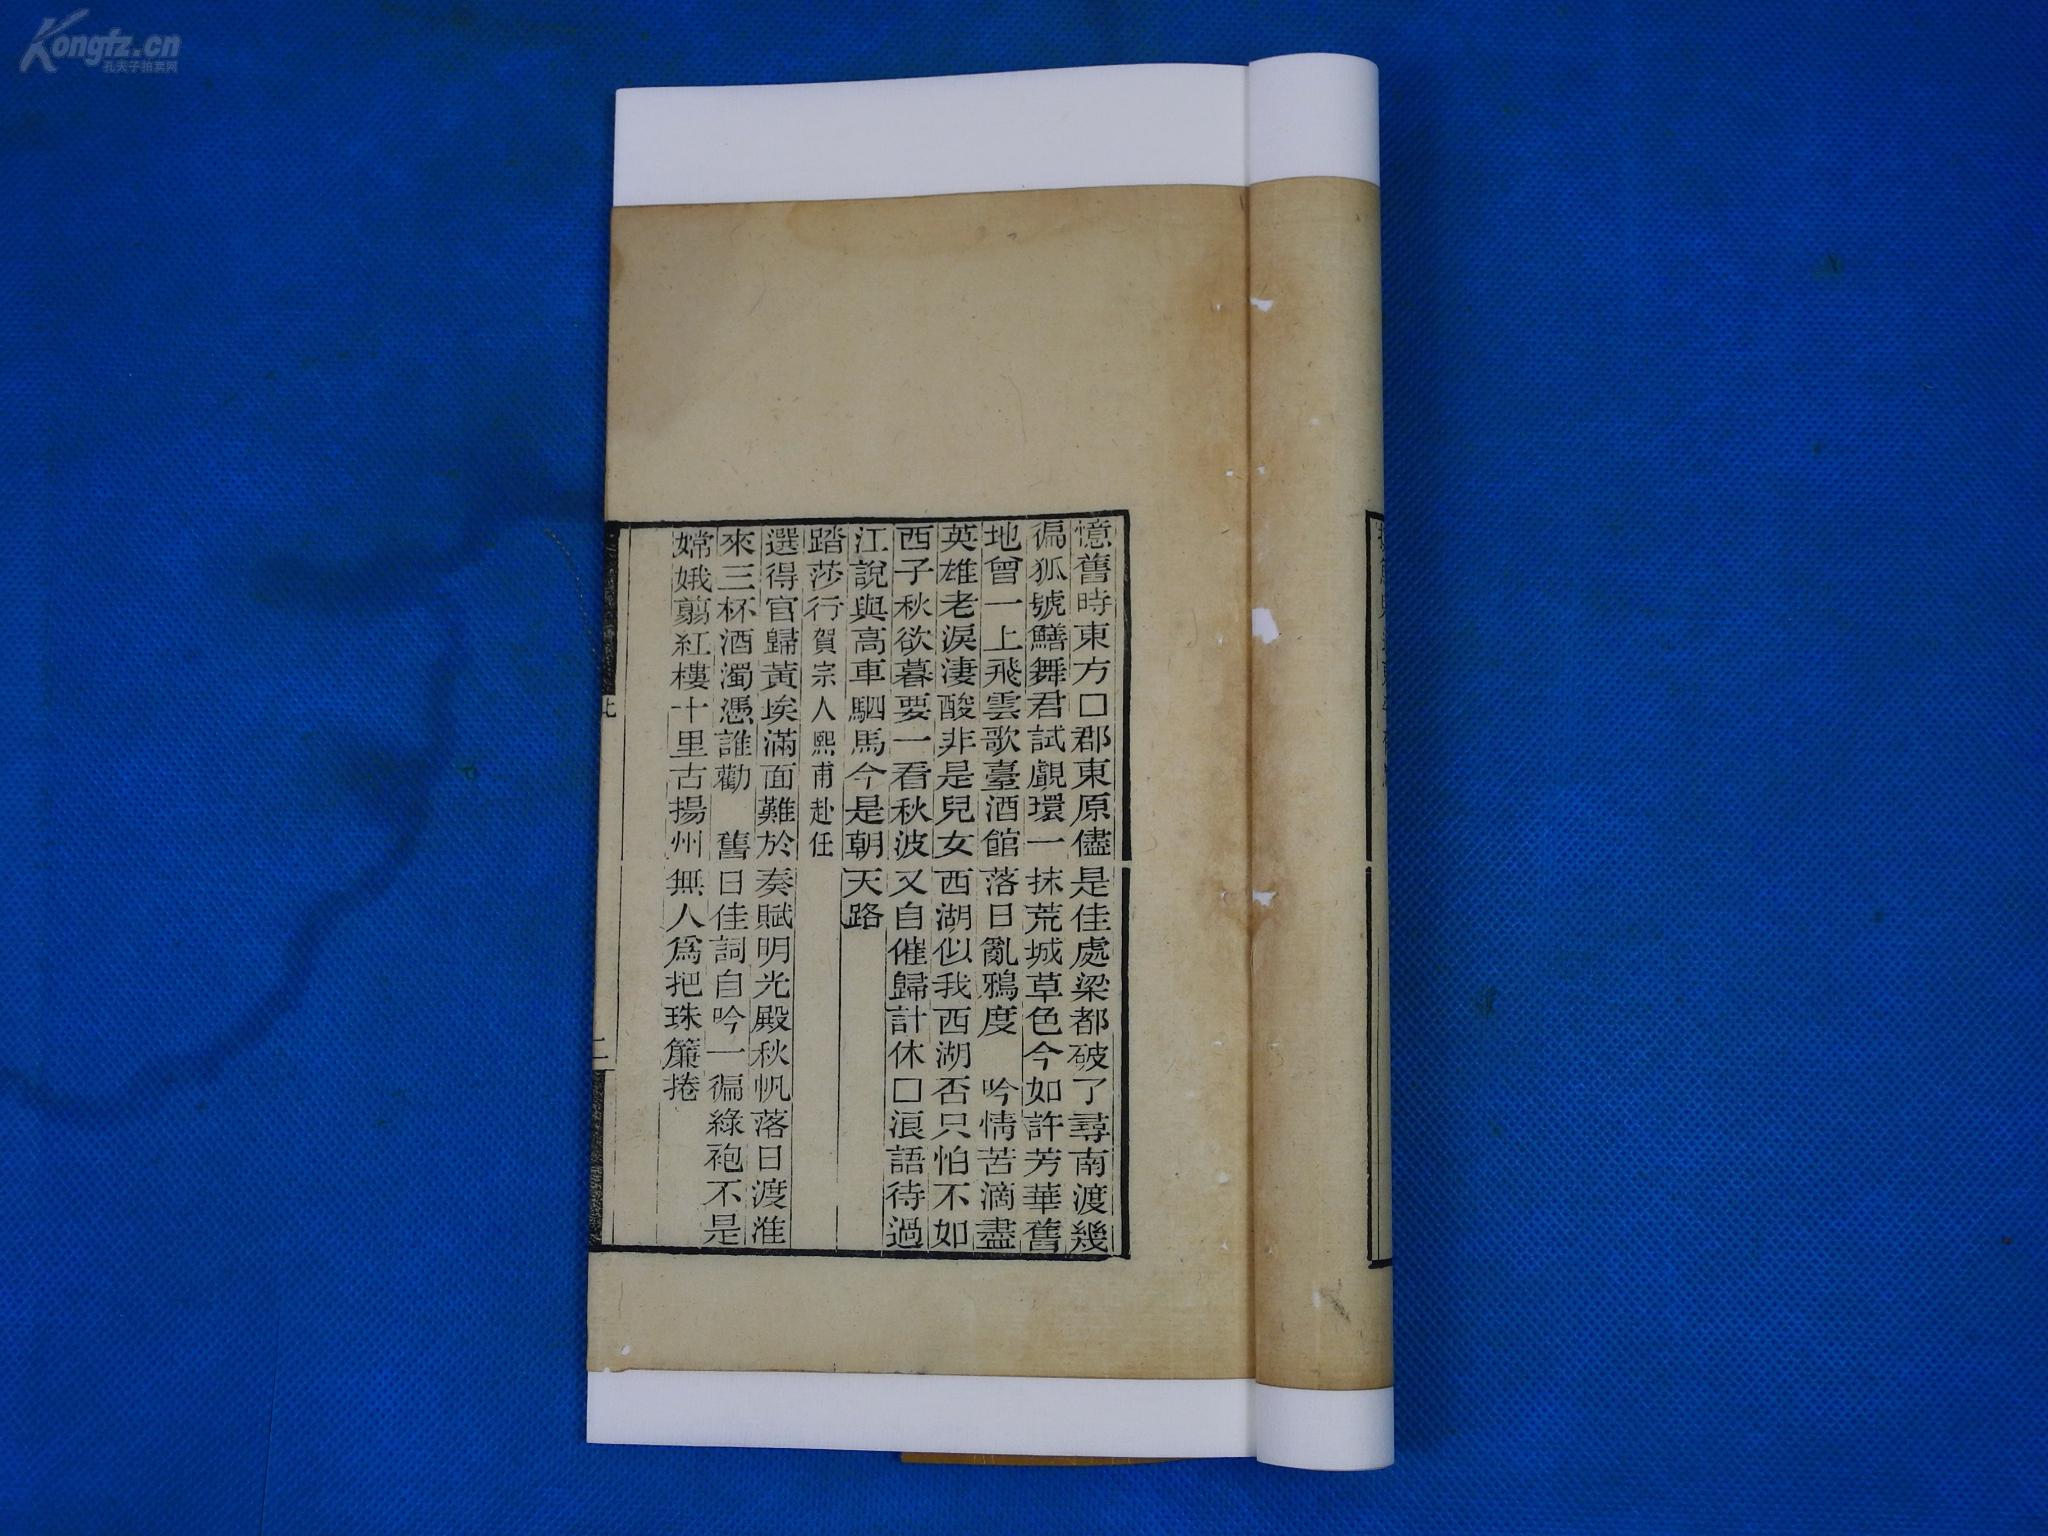 憶舊時東方□郡東原儘是佳處梁都破了尋南渡幾
徧狐號鱔舞君試覷環一抹荒城草色今如許芳華舊
地曾一上飛雲歌臺酒館落日亂鴉度　吟情苦滴盡
英雄老淚淒酸非是兒女西湖似我西湖否只怕不如
西子秋欲暮要一看秋波又自催歸計休□浪語待過
江說與高車駟馬今是朝天路
踏莎行賀宗人熙甫赴任
選得官歸黃埃滿面難於奏賦明光殿秋帆落日渡淮
來三杯酒濁憑誰勸　舊日佳詞自吟一徧綠袍不是
嫦娥翦紅樓十里古揚州無人爲把珠簾捲
二
Kongfz.cn
孔夫子拍卖网